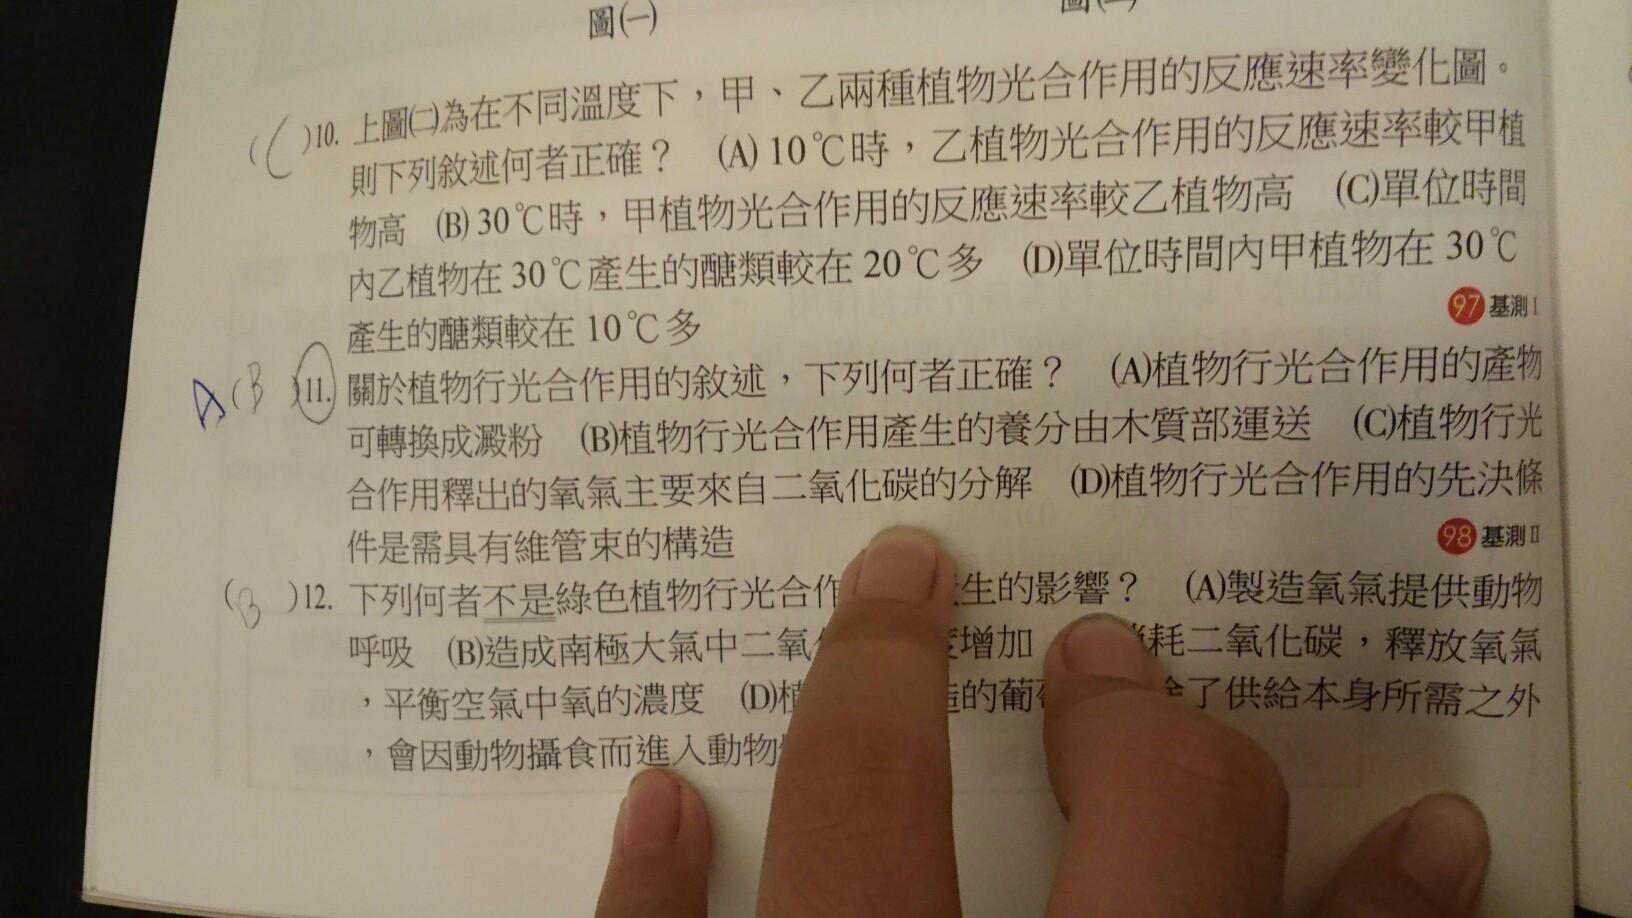 圖㈠
上圖㈡為在不同溫度下，甲、乙兩種植物光合作用的反應速率變化圖。
(C)10.
則下列敘述何者正確？ (A) 10℃時，乙植物光合作用的反應速率較甲植
物高 (B) 30℃時，甲植物光合作用的反應速率較乙植物高 (C)單位時間
內乙植物在 30℃產生的醣類較在 20℃多 (D)單位時間內甲植物在 30℃
產生的醣類較在 10℃多
97 基測 I
A (B )11. 關於植物行光合作用的敘述，下列何者正確？ (A)植物行光合作用的產物
可轉換成澱粉 (B)植物行光合作用產生的養分由木質部運送 (C)植物行光
合作用釋出的氧氣主要來自二氧化碳的分解 (D)植物行光合作用的先決條
件是需具有維管束的構造
98 基測 II
(B )12. 下列何者不是綠色植物行光合作 生的影響？ (A)製造氧氣提供動物
呼吸 (B)造成南極大氣中二氧 增加 耗二氧化碳，釋放氧氣
，平衡空氣中氧的濃度 (D) 的葡 了供給本身所需之外
，會因動物攝食而進入動物